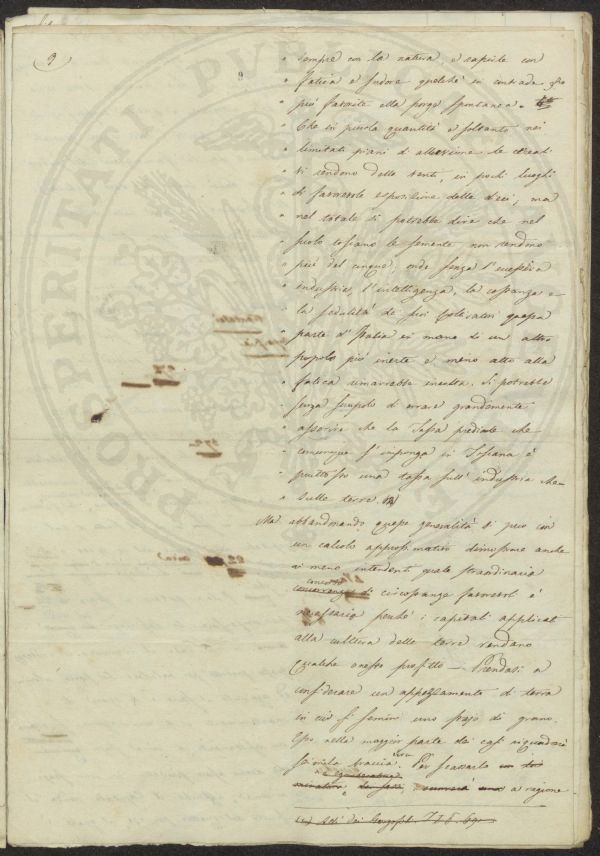 9
" sempre con la natura, e rapirle con
" fatica e sudore quelchè in contrada
" più favorite ella porge spontanea.
" Che in piccola quantità e soltanto nei
" limitati piani di alluvione le cereali
" vi rendono delle venti, in pochi luoghi
" di favorevole esposizione delle dieci, ma
" nel totale si potrebbe dire che nel
" suolo toscano le semente non rendono
" più del cinque; onde senza l'eccessiva
" industria, l'intelligenza, la costanza e
" la sedulità de suoi Coltivatori questa
" parte d'Italia in mano di un altro
" popolo più inerte e meno atto alla
" fatica rimarrebbe inculta. Si potrebbe
" senza scrupolo di errare grandemente
" asserire che la Tassa prediale che
" comunque s'imponga in Toscana è
" piuttosto una tassa sull'industria che
" sulle terre. (1)
Ma abbandonando queste generalità si può con
un calcolo approssimativo dimostrare anche
ai meno intendenti quale straordinaria
concorso di circostanze favorevoli è
necessario perchè i capitali applicati
alla cultura delle terre rendano
qualche onesto profitto — Prendasi a
considerare un appezzamento di terra
in cui si semini uno stajo di grano.
Esso nella maggior parte dei casi
mila braccia. Per scassarlo
a ragione
(1) Atti dei Georgofili. T.